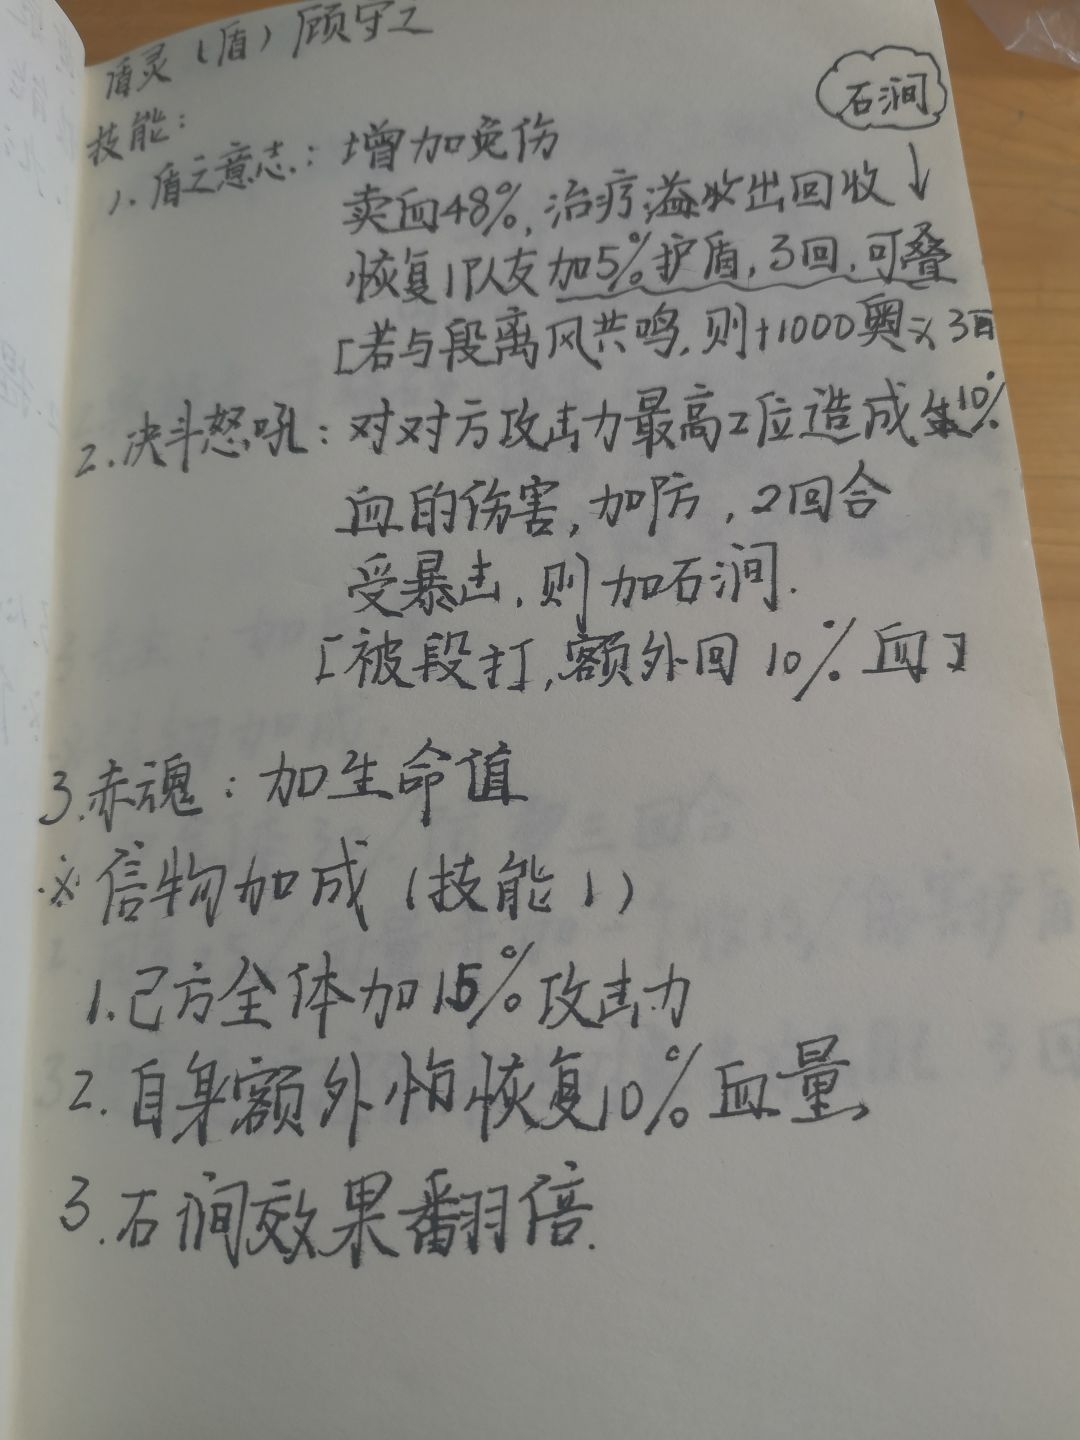 盾灵（盾）顾守之
石涧
技能：
1.盾之意志：增加免伤
卖血48%,治疗溢出回收↓
恢复1队友加5%护盾,3回,可叠
[若与段离风共鸣,则+1000奥义3回
2.决斗怒吼：对对方攻击力最高2位造成10%
血的伤害,加防,2回合
受暴击,则加石涧.
[被段打,额外回10%血]
3.赤魂：加生命值
※信物加成（技能1）
1.己方全体加15%攻击力
2.自身额外恢复10%血量
3.石涧效果翻倍.